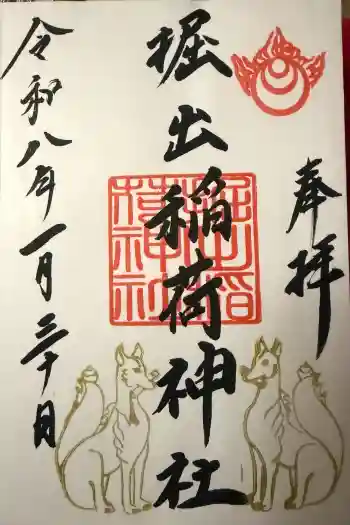 奉拝
掘出稲荷神社
掘出稲荷神社
令和八年一月三十日